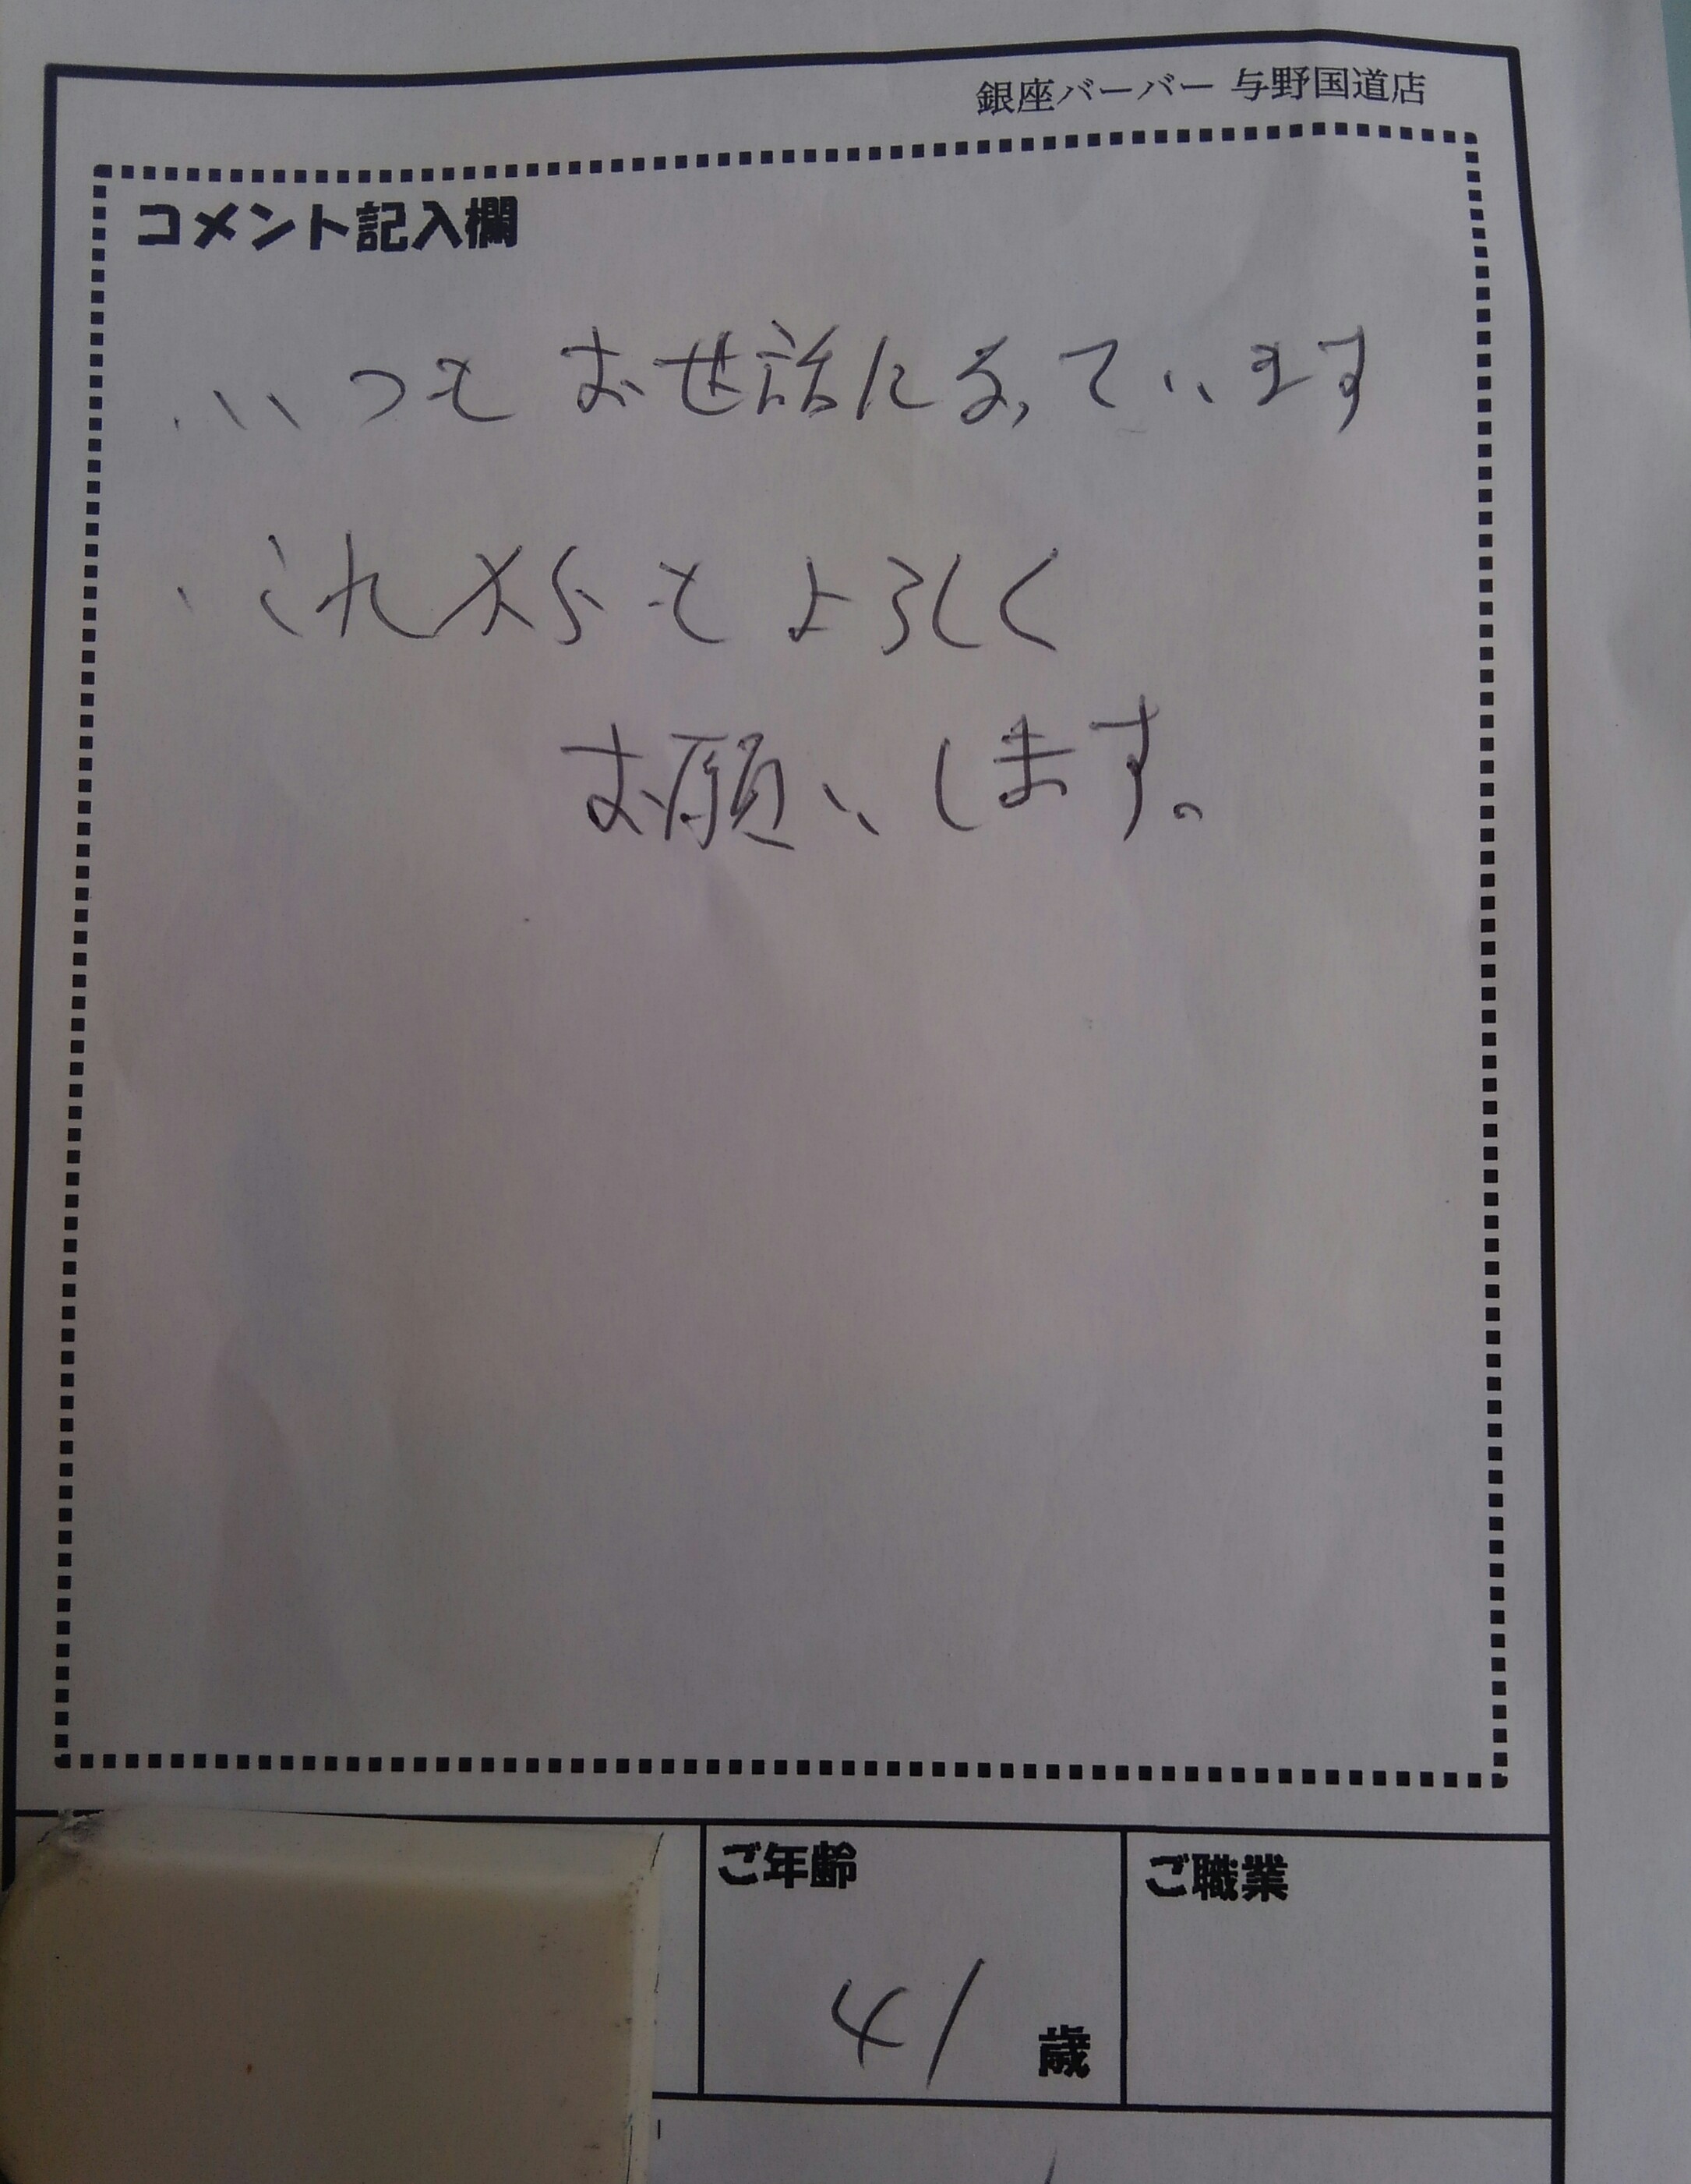 銀座バーバー 与野国道店
コメント記入欄
いつもお世話になっています
これからもよろしく
お願いします。
ご年齢
ご職業
41 歳